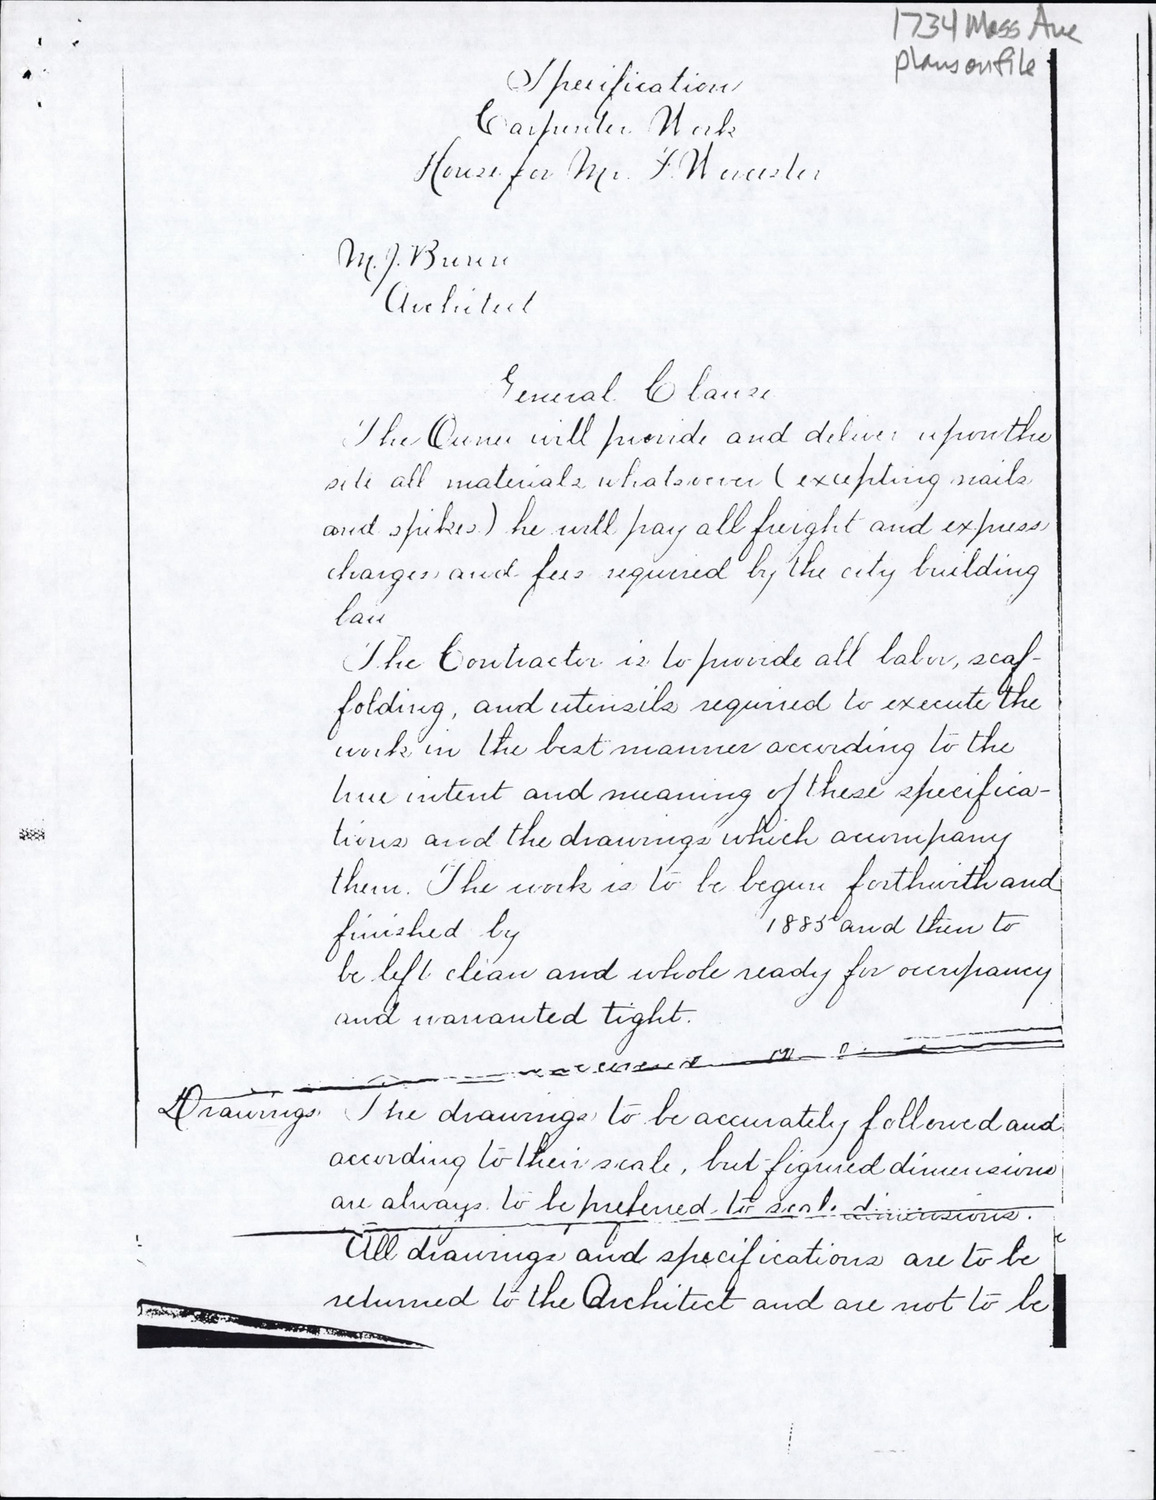 1734 Mass Ave
plans on file
Specification
Carpenter Work
House for Mr. F. Worcester
M. J.
Architect
General Clause
The Owner will provide and deliver upon the
site all materials whatsoever (excepting nails
and spikes) he will pay all freight and express
charges and fees required by the city building
law
The Contractor is to provide all labor, scaf-
folding, and utensils required to execute the
work in the best manner according to the
true intent and meaning of these specifica-
tions and the drawings which acompany
them. The work is to be begun forthwith and
finished by 1885 and then to
be left clean and whole ready for occupancy
and warranted tight.
Drawings. The drawings to be accurately followed and
according to their scale, but figured dimensions
are always to be preferred to scale dimensions.
All drawings and specifications are to be
returned to the Architect and are not to be